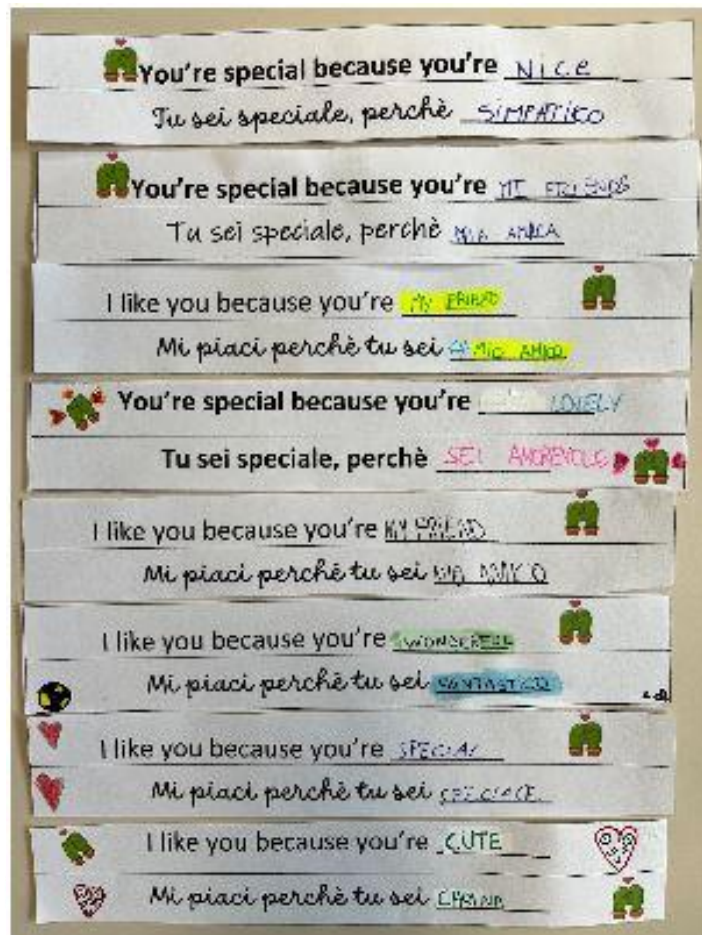 You're special because you're Nice
Tu sei speciale, perchè SIMPATICO
You're special because you're MI
Tu sei speciale, perchè MIA AMICA
I like you because you're MY FRIEND
Mi piaci perchè tu sei MIO AMICO
You're special because you're LOVELY
Tu sei speciale, perchè SEI AMOREVOLE
I like you because you're MY FRIEND
Mi piaci perchè tu sei AMICO
I like you because you're
Mi piaci perchè tu sei FANTASTICO
I like you because you're SPECIAL
Mi piaci perchè tu sei SPECIALE
I like you because you're CUTE
Mi piaci perchè tu sei CARINA